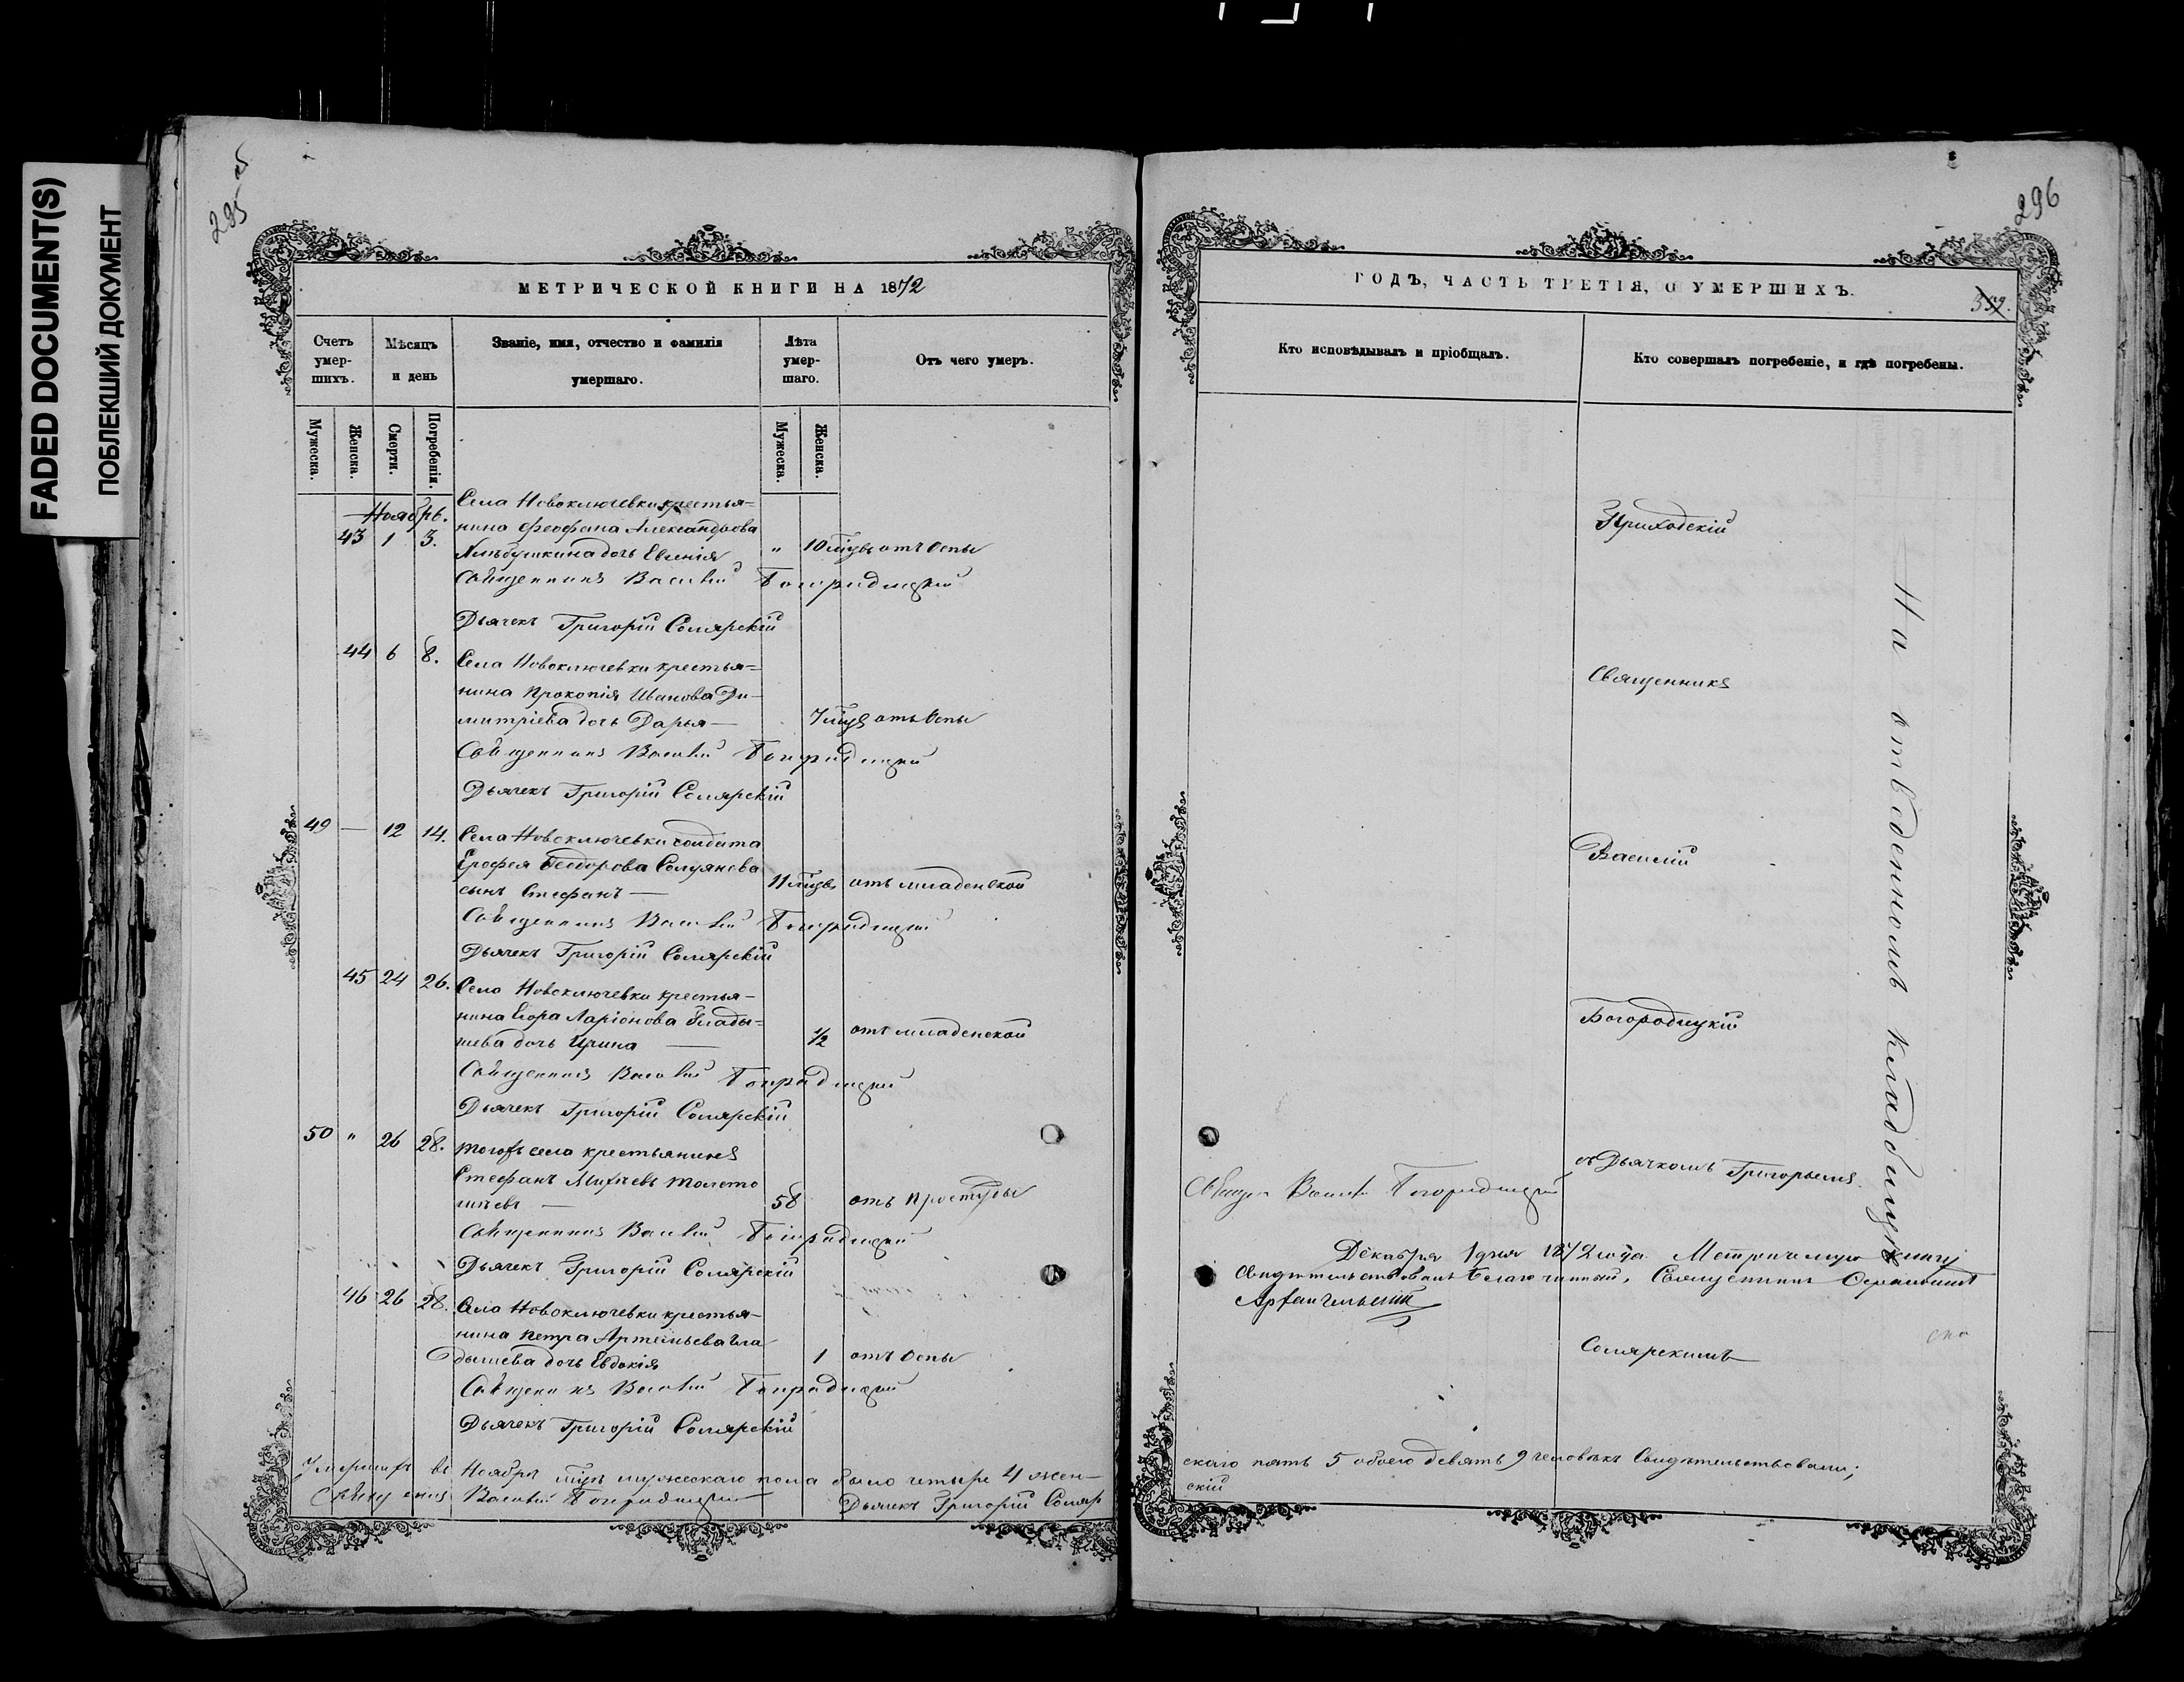 FADED DOCUMENT(S)
ПОБЛЕКШИЙ ДОКУМЕНТ
295 об
МЕТРИЧЕСКОЙ КНИГИ НА 1872
Счетъ умер-шихъ.
Мѣсяцъ и день
Званіе, имя, отчество и фамилія умершаго.
Лѣта умер-шаго.
Отъ чего умеръ.
Мужеска.
Женска.
Смерти.
Погребенія.
Мужеска.
Женска.
Ноябрь.
Села Новоключевки крестья-
нина Феофана Александрова
43 1 3.
дочь Евгенія " 10 мцвъ отъ Оспы
Священникъ Василій Богородицкій
Дьячекъ Григорій Солярскій
44 6 8. Села Новоключевки крестья=
нина Прокопія Иванова Ди-
митріева дочь Дарья — 7 мцв отъ Оспы
Священникъ Василій Богородицкій
Дьячекъ Григорій Солярскій
49 — 12 14. Села Новоключевки солдата
Ерофея Феодорова
сынъ Стефанъ — 11 мцвъ отъ младенской
Священникъ Василій Богородицкій
Дьячекъ Григорій Солярскій
45 24 26. Села Новоключевки крестья-
нина Егора Ларіонова Глады=
шева дочь Ирина — 1/2 отъ младенской
Священникъ Василій Богородицкій
Дьячекъ Григорій Солярскій
50 " 26 28. тогожъ села крестьянинъ
Стефанъ
58 отъ простуды
Священникъ Василій Богородицкій
Дьячекъ Григорій Солярскій
46 26 28. Села Новоключевки крестья-
нина Петра Артемьева Гла
дышева дочь Евдокія 1 отъ Оспы
Священникъ Василій Богородицкій
Дьячекъ Григорій Солярскій
Умершихъ въ Ноябрѣ мцѣ мужескаго пола было четыре 4 жен-
Священникъ Василій Богородицкій Дьячекъ Григорій Соляр
296
ГОДЪ, ЧАСТЬ ТРЕТІЯ, О УМЕРШИХЪ.
359.
Кто исповѣдывалъ и пріобщалъ.
Кто совершалъ погребеніе, и гдѣ погребены.
Приходскій
Священникъ
Василій
Богородицкій
съ Дьячкомъ Григорьемъ
Солярскимъ
На отведенномъ кладбищѣ
Священ Василій Богородицкій
Декабря 1 дня 1872 года. Метрическую книгу
свидѣтельствовалъ Благочинный, Священникъ
Архангельскій
скаго пять 5 обоего девять 9 человѣкъ Свидѣтельствовали;
скій